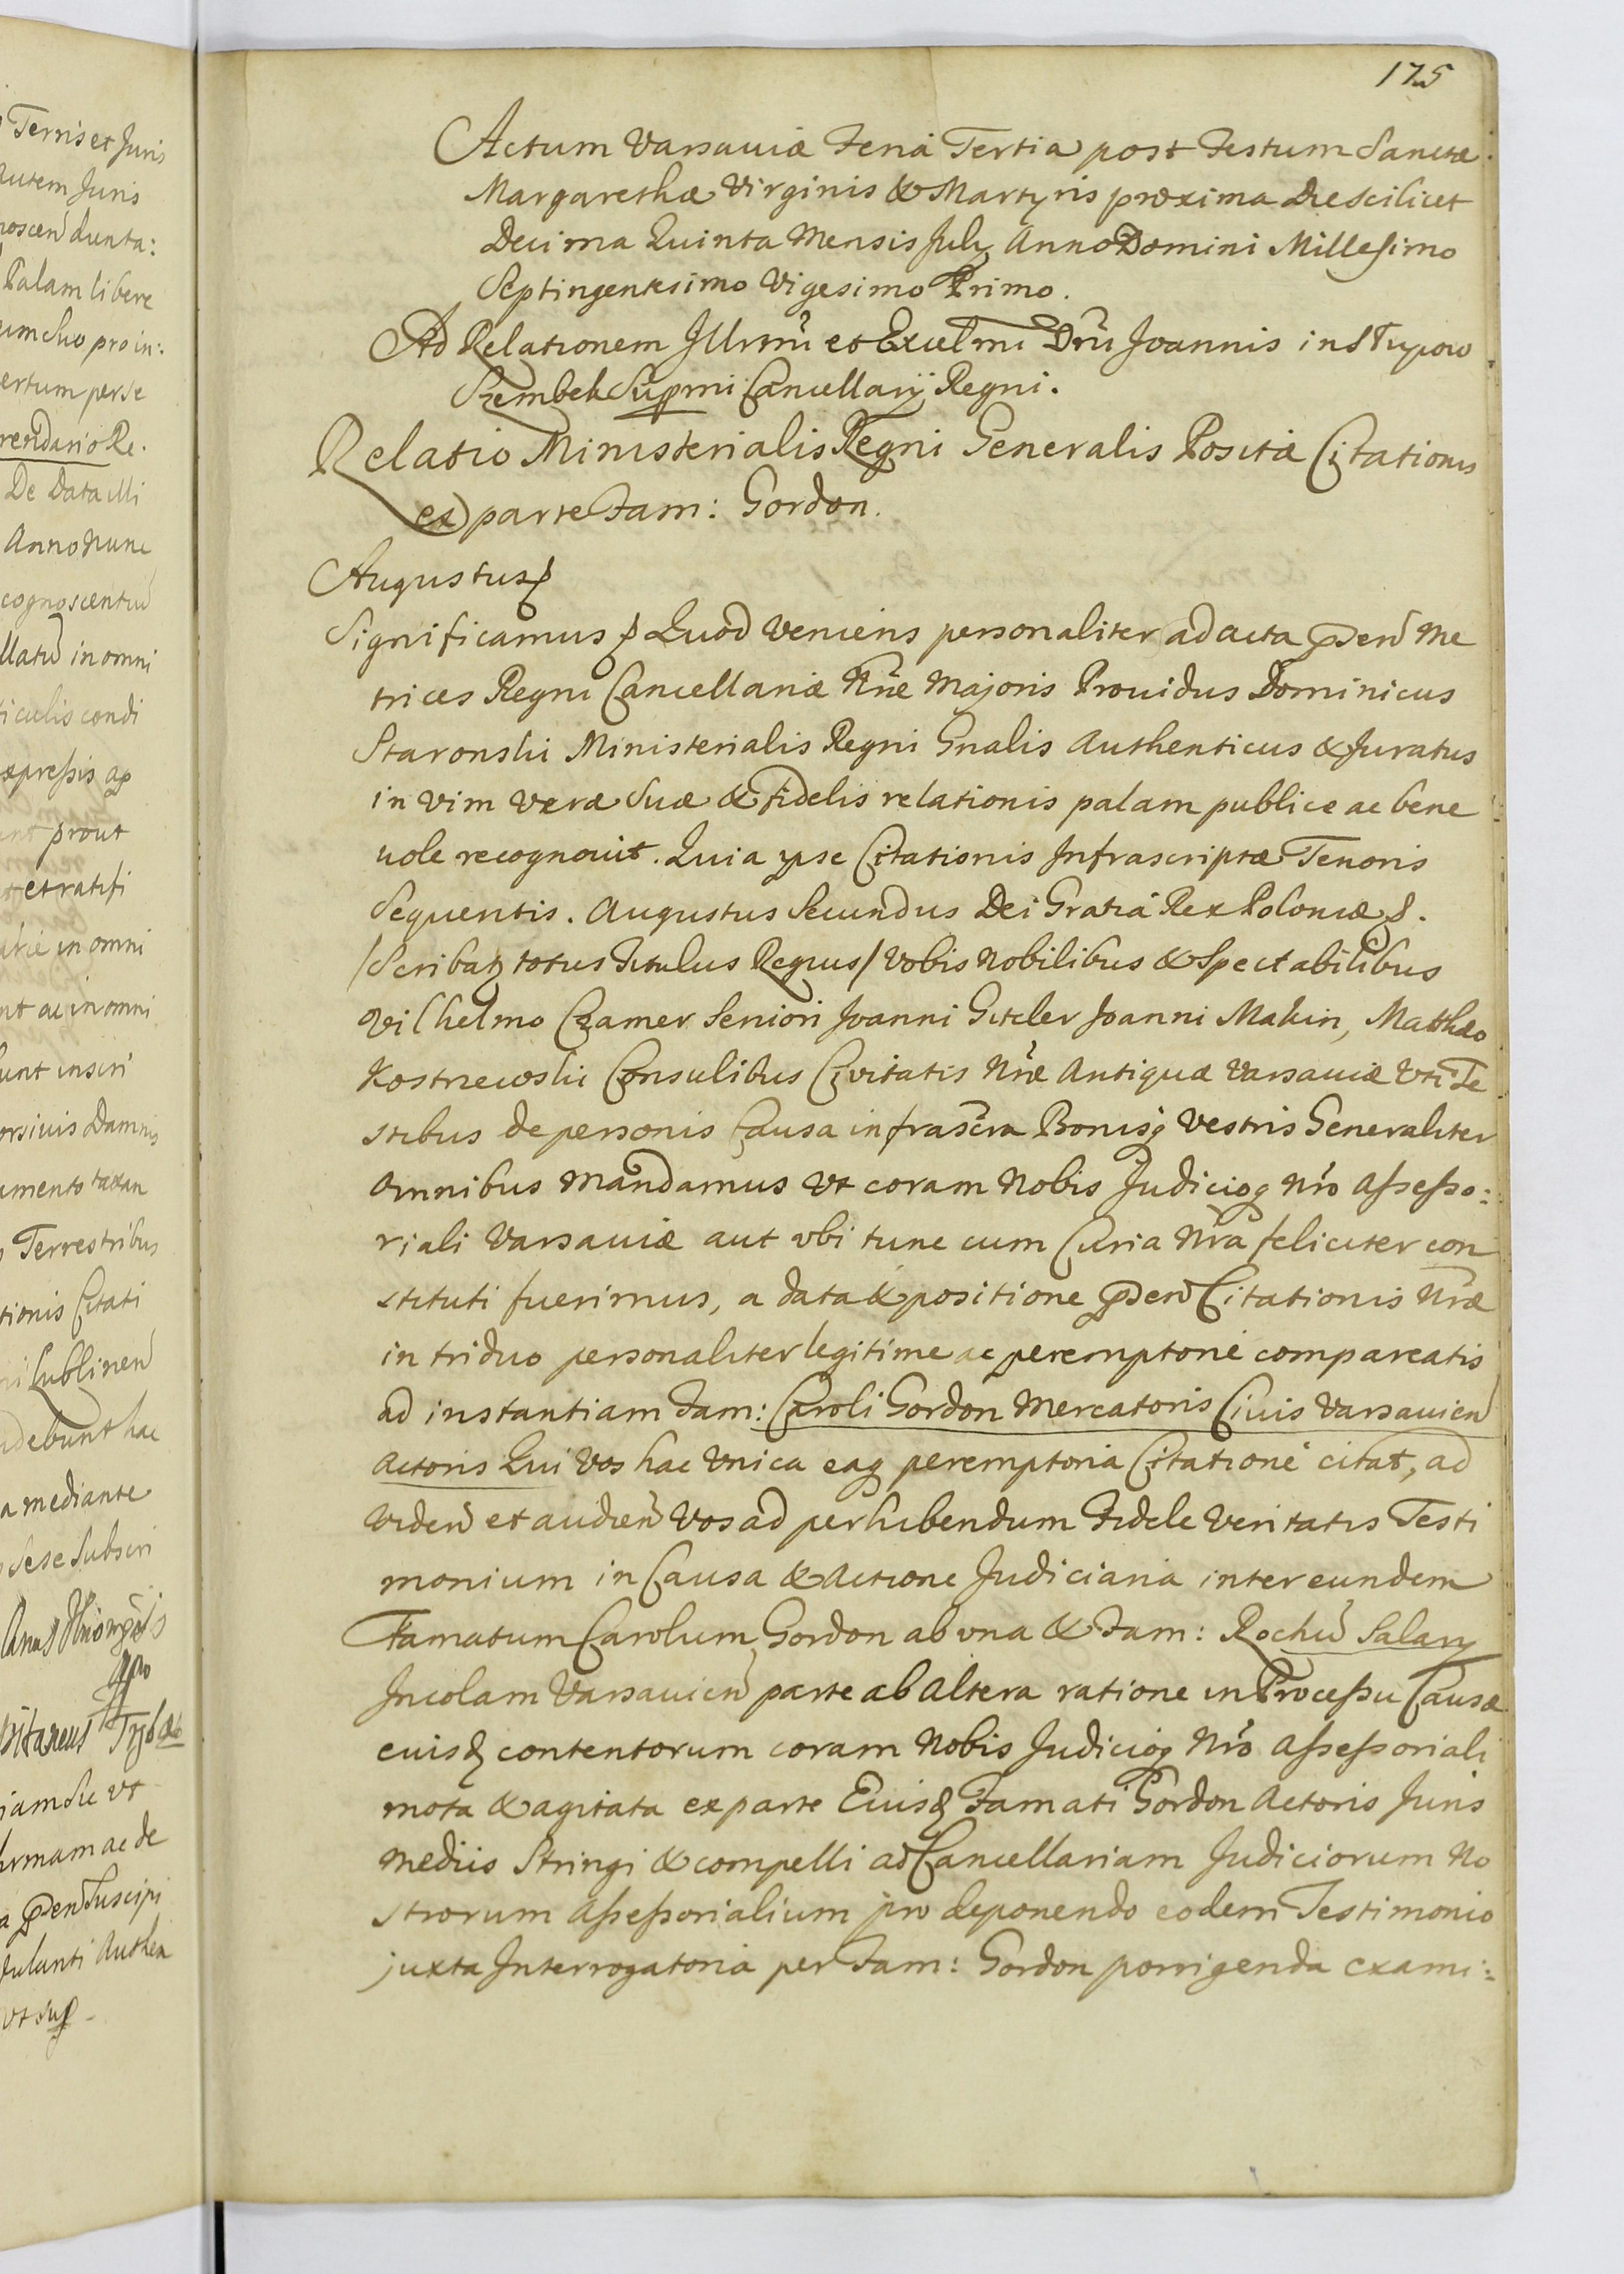 Terris et Juris
autem Juris
noscen̄ dunta:
Palam libere
um Suo pro in:
ertum per se
rendario Re.
De Data illi
Anno Nunc
cognoscentur̄
llatū in omni
iculis condi
xpressis ap
unt prout
et ratifi
in omni
nt ac in omni
bunt inscri
orsivis Damnis
amento taxan
Terrestribus
tionis Citati
ni Lublinen̄
debunt hac
a mediante
Sese Subscri
iam Su vt
irmam ac de
a p̄den̄ Suscipi
tulanti Authen
vt sup̄
175
Actum Varsaviæ Feria Tertia post Festum Sanctæ
Margarethæ Virginis & Martyris proxima Die Scilicet
Decima Quinta Mensis July Anno Domini Millesimo
Septingentesimo Vigesimo Primo.
Ad Relationem Illrmi et Excelmi Dni Joannis in STupow
Szembek Supmi Cancellarij Regni.
Relatio Ministerialis Regni Generalis Positæ Citationis
ex parte Fam: Gordon.
Augustus ꝑ
Significamus ꝑ Quod Veniens personaliter ad acta p̄den̄ Me
trices Regni Cancellariæ Nr̄æ Majoris Providus Dominicus
Staronski Ministerialis Regni Gnalis Authenticus & Juratus
in vim veræ Suæ & fidelis relationis palam publice ac bene
vole recognovit. Quia ipse Citationis Infrascriptæ Tenoris
Sequentis. Augustus Secundus Dei Gratiâ Rex Poloniæ ꝑ.
/Scribatz totus Titulus Regius/ Vobis Nobilibus & Spectabilibus
Vilhelmo Czamer Seniori Joanni Gitler Joanni Makin, Mathæo
Kostrzewski Consulibus Civitatis Nr̄æ Antiquæ Varsaviæ Vti Te
stibus de personis Causa infrascra Bonisq Vestris Generaliter
Omnibus Mandamus Vt coram Nobis Judicioq Nr̄o Assesso:
riali Varsaviæ aut vbi tunc cum Curia Nr̄a feliciter con
stituti fuerimus, a data & positione p̄den̄ Citationis Nr̄æ
in triduo personaliter legitime ac peremptorie compareatis
ad instantiam Fam: Caroli Gordon Mercatoris Civis Varsavien̄
Actoris Qui Vos hac Vnica eaq peremptoria Citatione citat, ad
Viden̄ et audien̄ Vos ad perhibendum Fidele Veritatis Testi
monium in Causa & Actione Judiciaria inter eundem
Famatum Carolum Gordon ab vna & Fam: Rochū Salary
Incolam Varsavien̄ parte ab Altera ratione in Processu Causæ
euisd contentorum coram Nobis Judicioq Nr̄o Assessoriali
mota & agitata ex parte Euisd Famati Gordon Actoris Juris
Mediis Stringi & compelli ad Cancellariam Judiciorum No
strorum Assessorialium pro deponendo eodem Testimonio
juxta Interrogatoria per Fam: Gordon porrigenda exami: